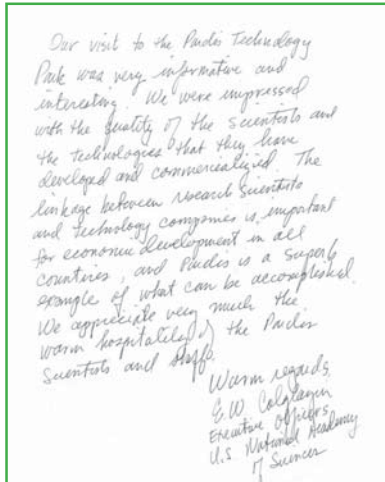 Our visit to the Pardis Technology
Park was very informative and
interesting. We were impressed
with the quality of the scientists and
the technologies that they have
developed and commercialized. The
linkage between research scientists
and technology companies is important
for economic development in all
countries, and Pardis is a superb
example of what can be accomplished.
We appreciate very much the
warm hospitality of the Pardis
Scientists and staff.
Warm regards,
E. W. Colglazier
Executive Officer,
U.S. National Academy
of Sciences